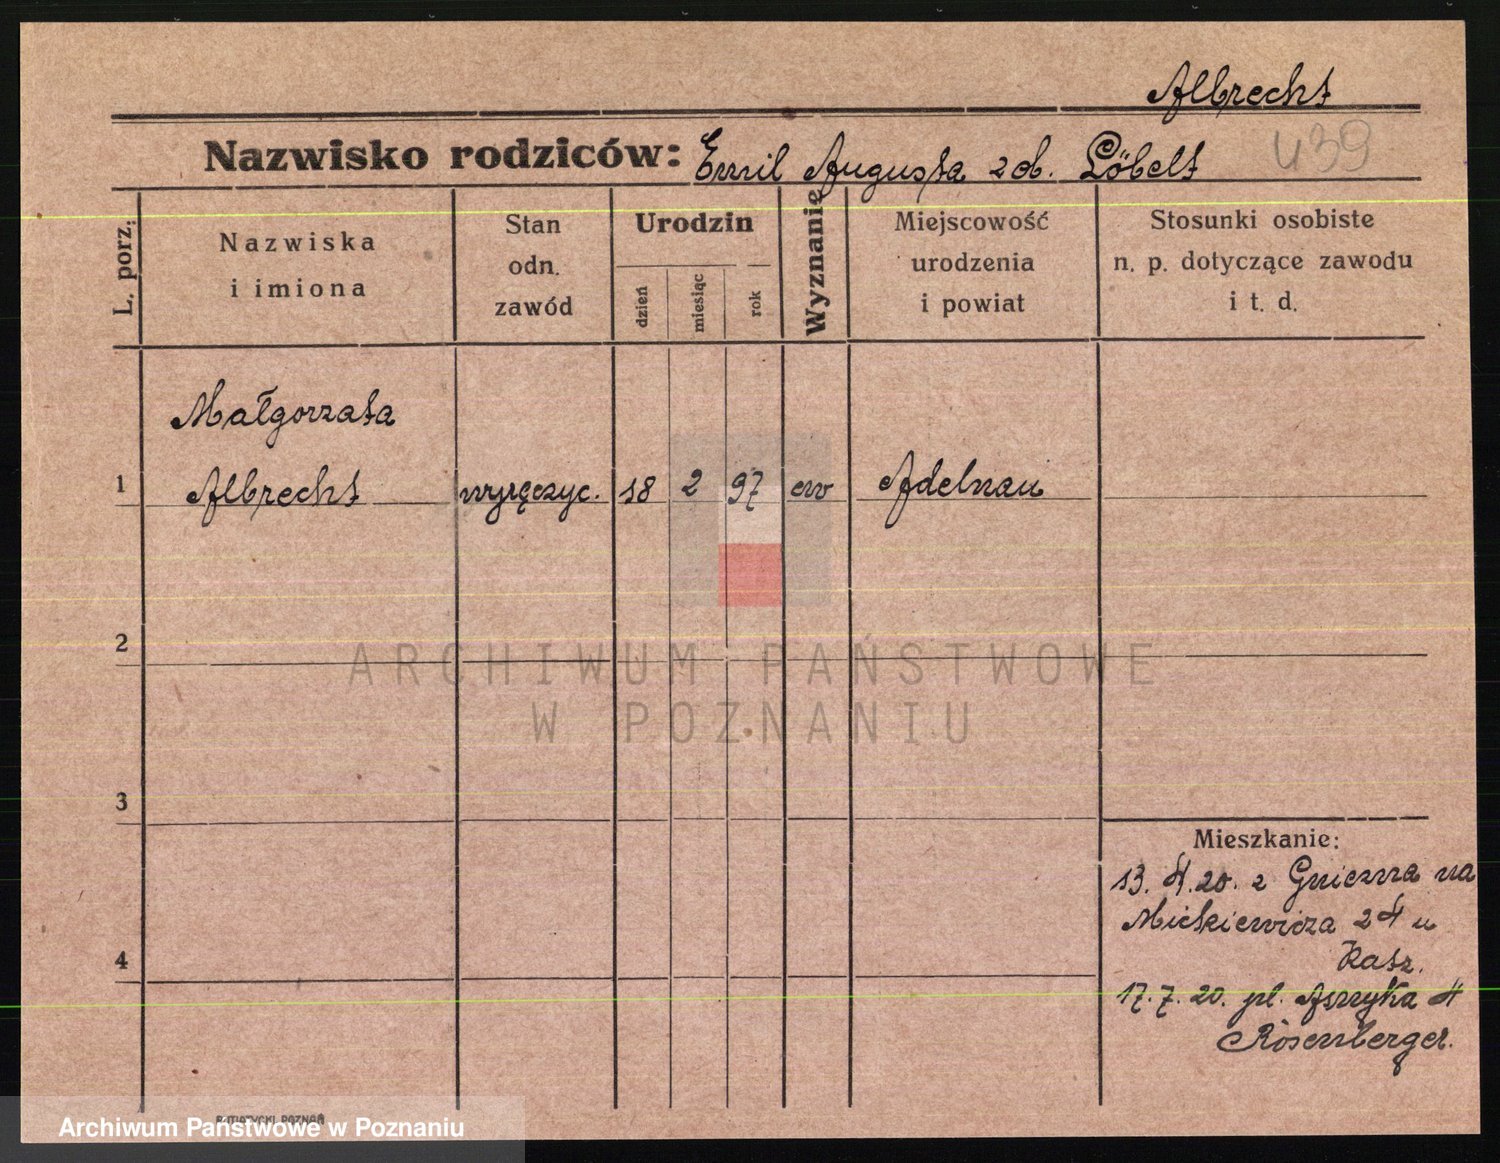 Albrecht
Nazwisko rodziców: Emil Augusta z d. Löbelt 439
L. porz.
Nazwiska
i imiona
Stan
odn.
zawód
Urodzin
dzień
miesiąc
rok
Wyznanie
Miejscowość
urodzenia
i powiat
Stosunki osobiste
n. p. dotyczące zawodu
i t. d.
Małgorzata
1 Albrecht wyręczyc. 18 2 97 ew Adelnau
2
ARCHIWUM PAŃSTWOWE
W POZNANIU
3
Mieszkanie:
13. 4. 20. z Gniezna na
Mickiewicza 24 u
Kasz.
4
17. 7. 20. pl. Asnyka 4
Rosenberger.
Archiwum Państwowe w Poznaniu